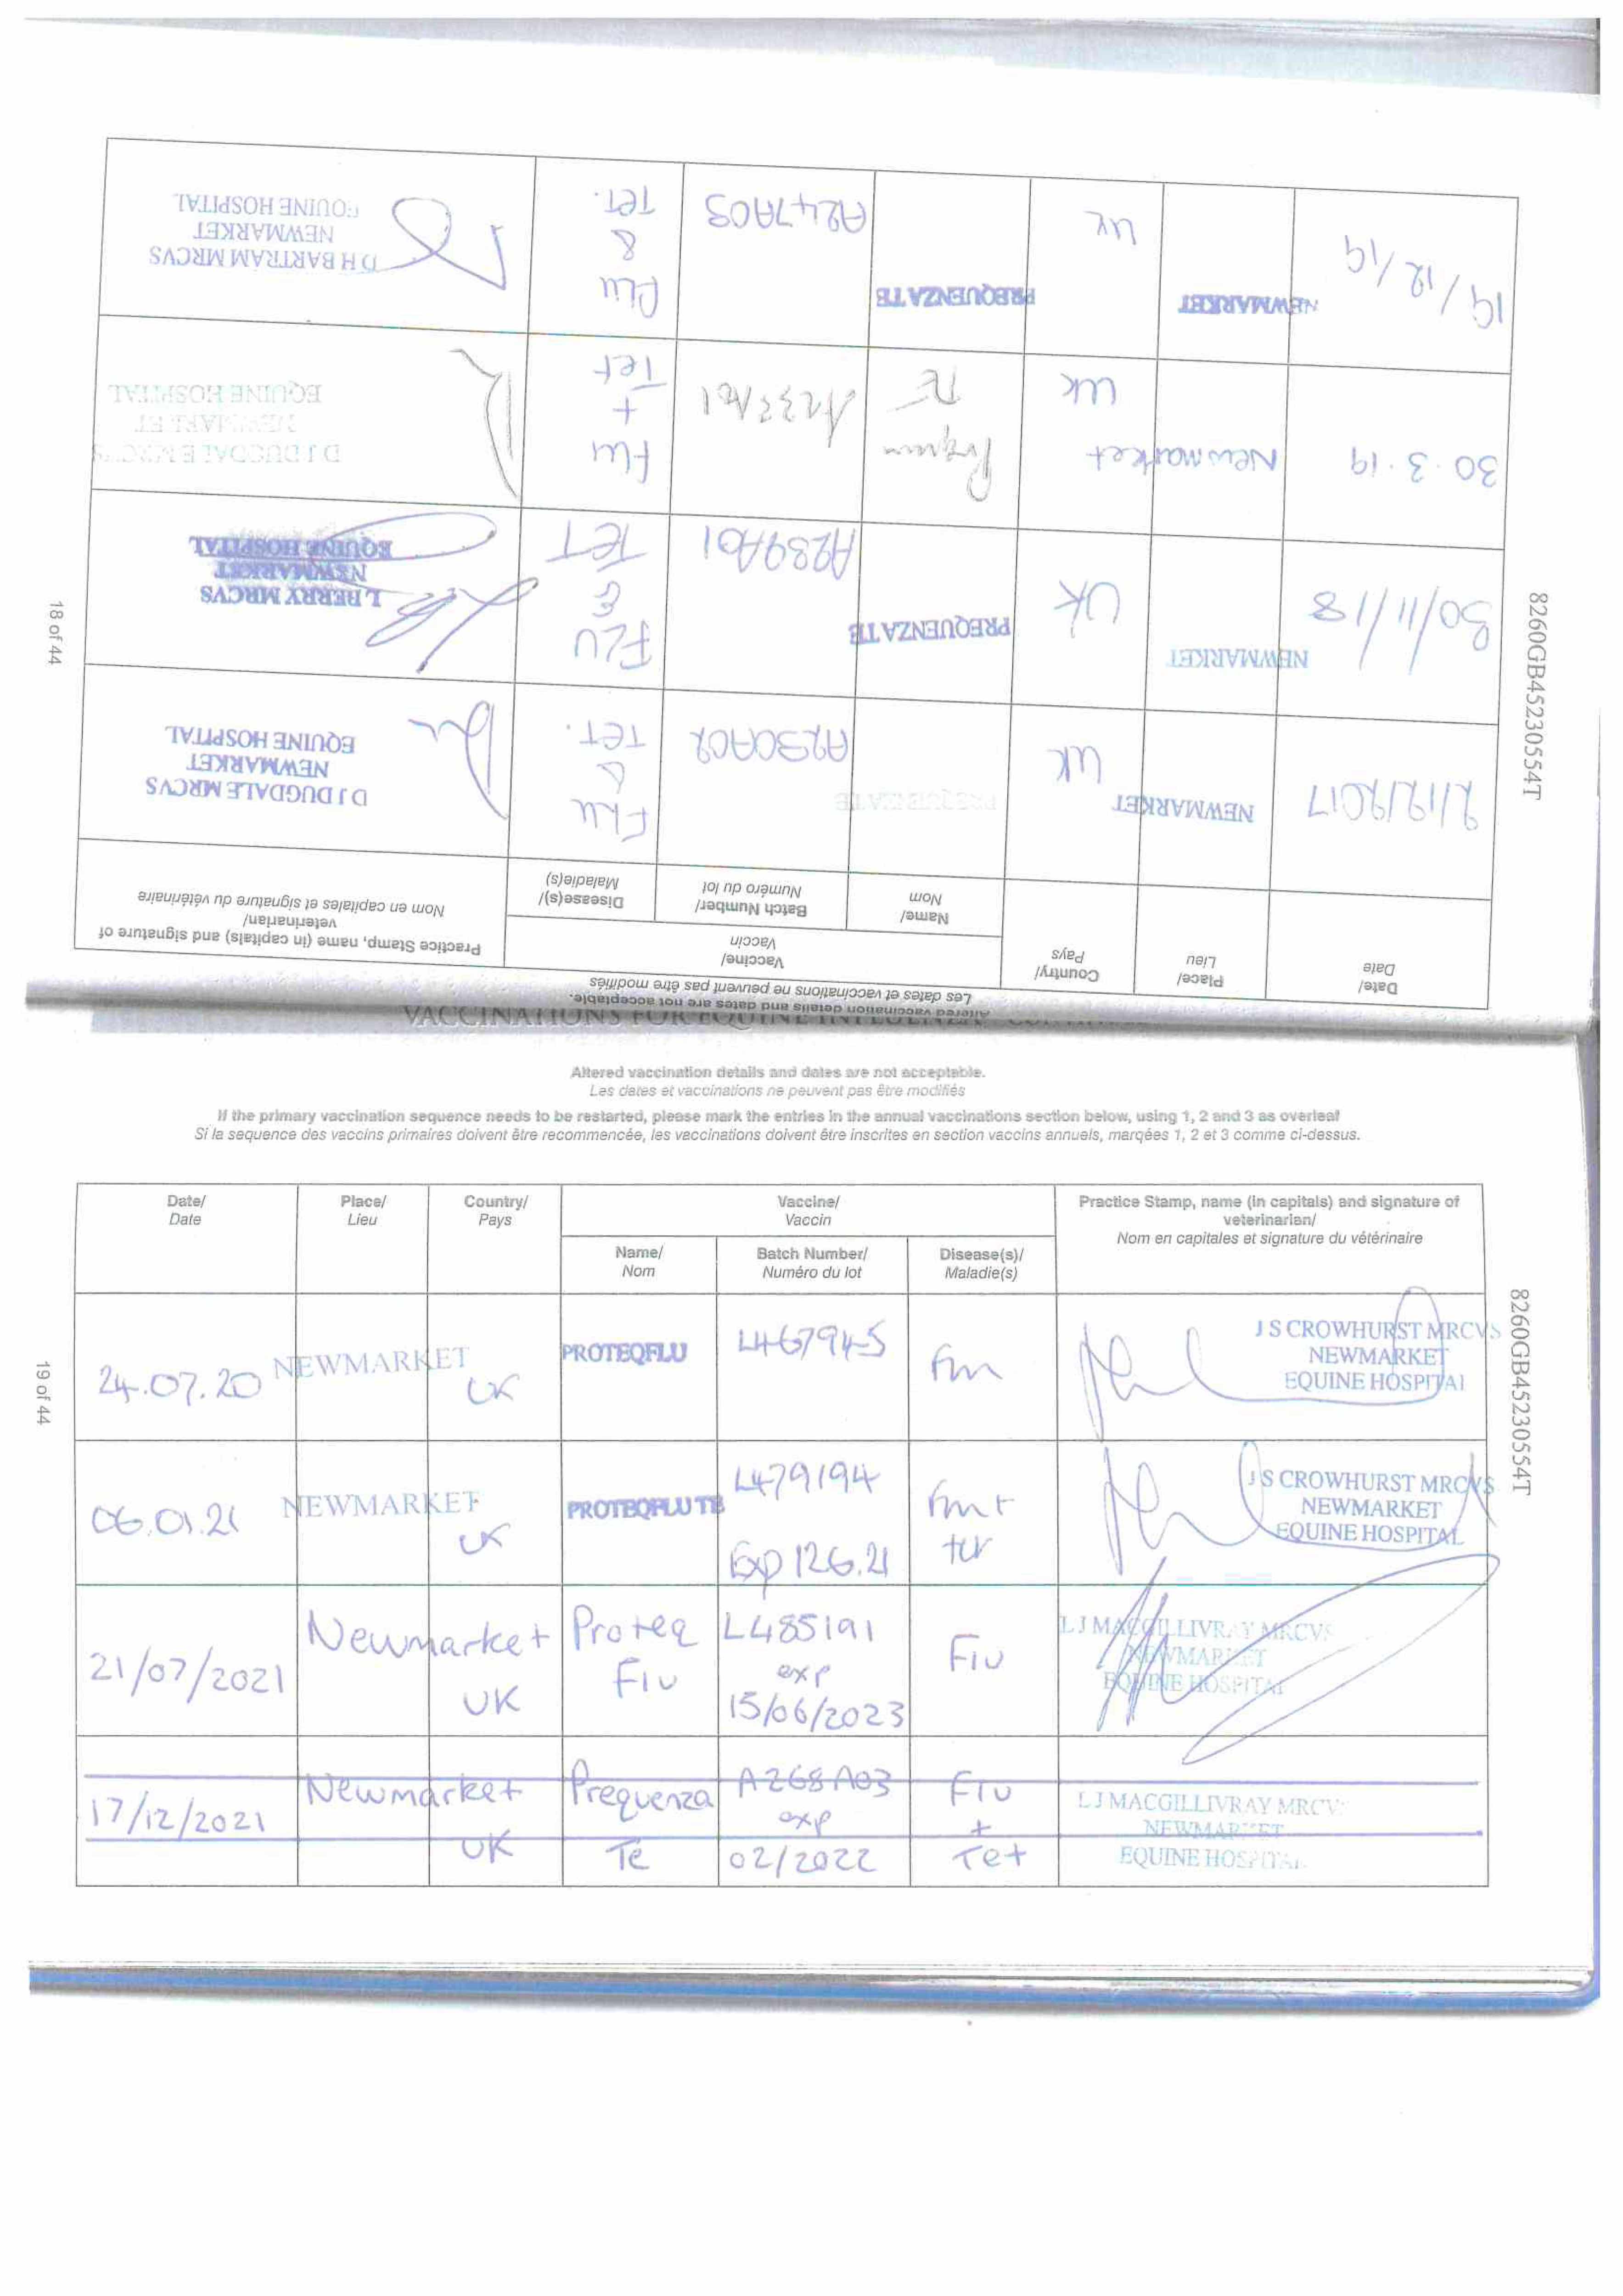 18 of 44
8260GB45230554T
Altered vaccination details and dates are not acceptable.
Les dates et vaccinations ne peuvent pas être modifiés
Date/ Date
Place/ Lieu
Country/ Pays
Vaccine/ Vaccin
Name/ Nom
Batch Number/ Numéro du lot
Disease(s)/ Maladie(s)
Practice Stamp, name (in capitals) and signature of
veterinarian/
Nom en capitales et signature du vétérinaire
2/12/2017 NEWMARKET UK PREQUENZA TE A230A02 FLU & TET.
D J DUGDALE MRCVS
NEWMARKET
EQUINE HOSPITAL
30/11/18 NEWMARKET UK PREQUENZA TE A239A01 FLU & TET
L BERRY MRCVS
NEWMARKET
EQUINE HOSPITAL
30.3.19 Newmarket UK Te Flu + Tet
D J DUGDALE MRCVS
NEWMARKET
EQUINE HOSPITAL
19/12/19 NEWMARKET UK PREQUENZA TE A247A03 FLU & TET.
D H BARTRAM MRCVS
NEWMARKET
EQUINE HOSPITAL
VACCINATIONS FOR EQUINE INFLUENZA
Altered vaccination details and dates are not acceptable.
Les dates et vaccinations ne peuvent pas être modifiés
If the primary vaccination sequence needs to be restarted, please mark the entries in the annual vaccinations section below, using 1, 2 and 3 as overleaf
Si la sequence des vaccins primaires doivent être recommencée, les vaccinations doivent être inscrites en section vaccins annuels, marqées 1, 2 et 3 comme ci-dessus.
19 of 44
8260GB45230554T
Date/ Date
Place/ Lieu
Country/ Pays
Vaccine/ Vaccin
Name/ Nom
Batch Number/ Numéro du lot
Disease(s)/ Maladie(s)
Practice Stamp, name (in capitals) and signature of
veterinarian/
Nom en capitales et signature du vétérinaire
24.07.20 NEWMARKET UK PROTEQFLU L467945 Flu
J S CROWHURST MRCVS
NEWMARKET
EQUINE HOSPITAL
06.01.21 NEWMARKET UK PROTEQFLU TE L479194 Exp 12.6.21 Flu + tet
J S CROWHURST MRCVS
NEWMARKET
EQUINE HOSPITAL
21/07/2021 Newmarket UK Proteq Flu L485191 exp 15/06/2023 Flu
L J MACGILLIVRAY MRCVS
NEWMARKET
EQUINE HOSPITAL
17/12/2021 Newmarket UK Prequenza Te A268A03 exp 02/2022 Flu + Tet
L J MACGILLIVRAY MRCVS
NEWMARKET
EQUINE HOSPITAL